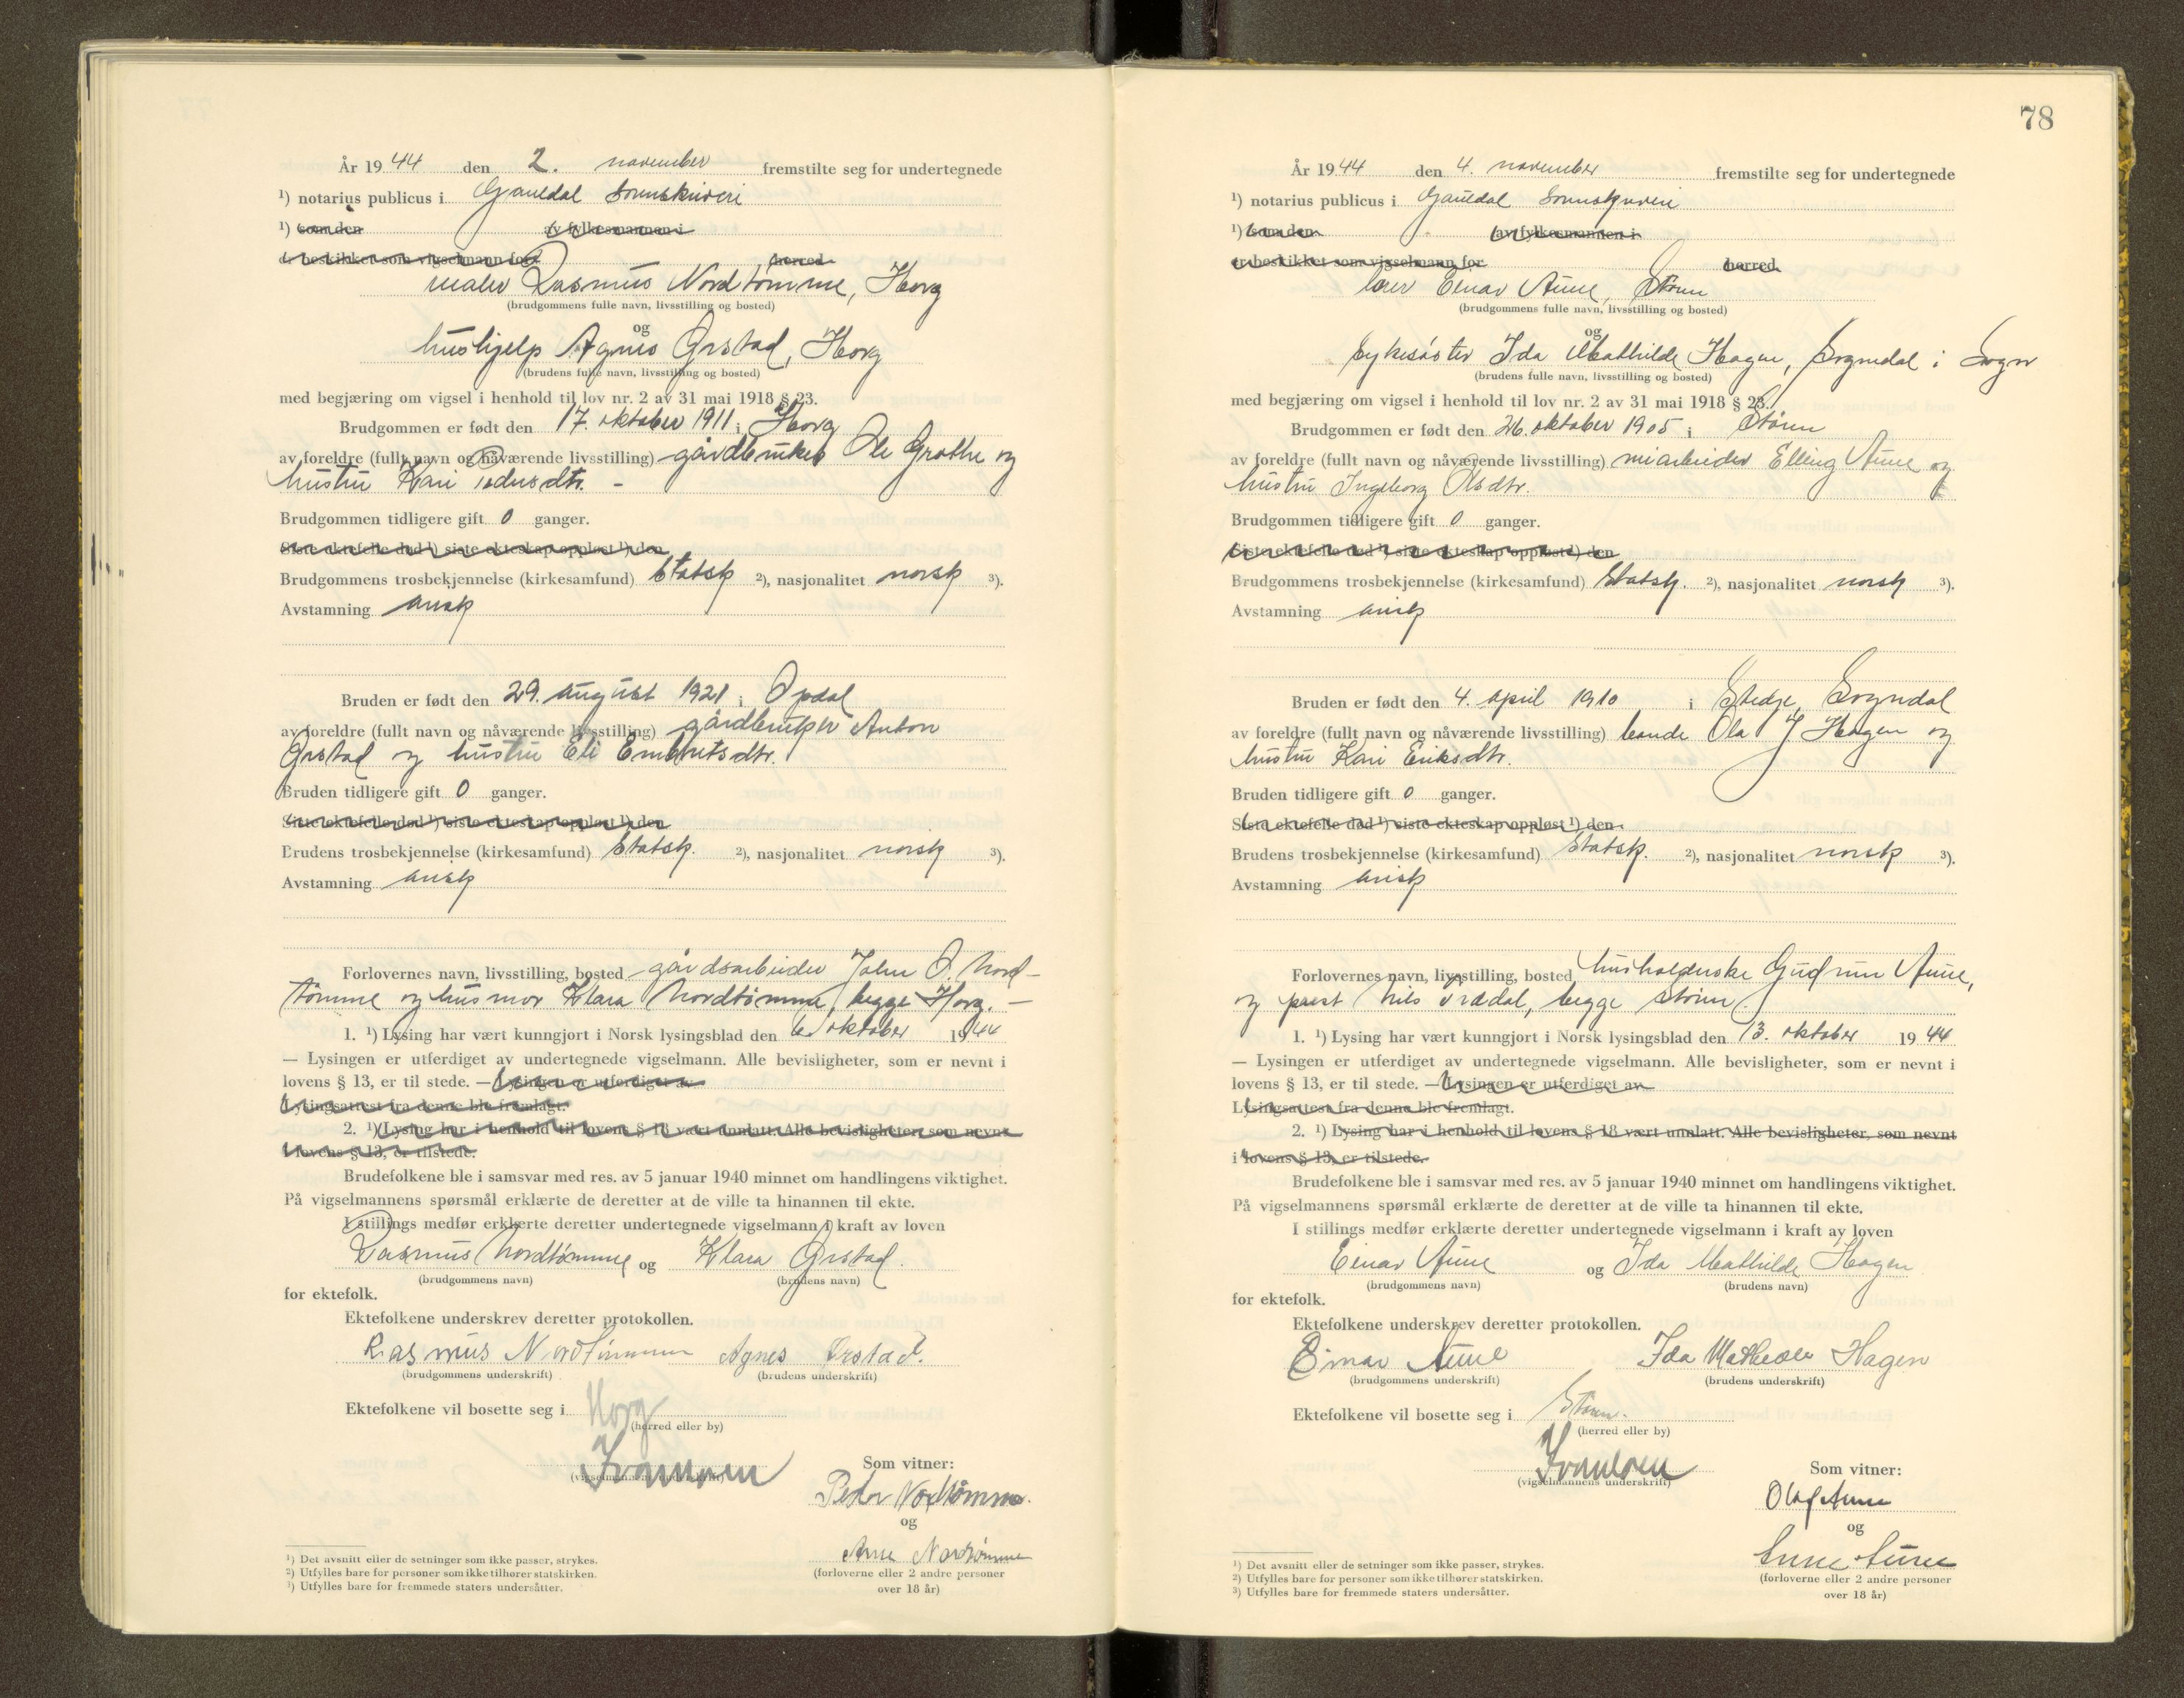 År 1944 den 2. november fremstilte seg for undertegnede
¹) notarius publicus i Gauldal Sorenskriveri
¹) som den av fylkesmannen i
er beskikket som vigselmann for herred
maler Rasmus Nordtømme, Horg
(brudgommens fulle navn, livsstilling og bosted)
og
hushjelp Agnes Ørstad, Horg
(brudens fulle navn, livsstilling og bosted)
med begjæring om vigsel i henhold til lov nr. 2 av 31 mai 1918 § 23.
Brudgommen er født den 17. oktober 1911 i Horg
av foreldre (fullt navn og nåværende livsstilling) gårdbruker Ole Grothe og
hustru Kari
Brudgommen tidligere gift 0 ganger.
Siste ektefelle død ¹) siste ekteskap oppløst ¹) den
Brudgommens trosbekjennelse (kirkesamfund) Statsk ²), nasjonalitet norsk ³).
Avstamning arisk
Bruden er født den 29. august 1921 i Opdal
av foreldre (fullt navn og nåværende livsstilling) gårdbruker Anton
Ørstad og hustru Eli Embretsdtr.
Bruden tidligere gift 0 ganger.
Siste ektefelle død ¹) siste ekteskap oppløst ¹) den
Brudens trosbekjennelse (kirkesamfund) Statsk. ²), nasjonalitet norsk ³).
Avstamning arisk
Forlovernes navn, livsstilling, bosted gårdsarbeider John O. Nord-
tømme og husmor Klara Nordtømme, begge Horg. —
1. ¹) Lysing har vært kunngjort i Norsk lysingsblad den 6. oktober 1944
— Lysingen er utferdiget av undertegnede vigselmann. Alle bevisligheter, som er nevnt i
lovens § 13, er til stede. — Lysingen er utferdiget av
Lysingsattest fra denne ble fremlagt.
2. ¹) Lysing har i henhold til lovens § 18 vært unnlatt. Alle bevisligheter, som nevnt
i lovens § 13, er tilstede.
Brudefolkene ble i samsvar med res. av 5 januar 1940 minnet om handlingens viktighet.
På vigselmannens spørsmål erklærte de deretter at de ville ta hinannen til ekte.
I stillings medfør erklærte deretter undertegnede vigselmann i kraft av loven
Rasmus Nordtømme og Klara Ørstad.
(brudgommens navn) (brudens navn)
for ektefolk.
Ektefolkene underskrev deretter protokollen.
Rasmus Nordtømme Agnes Ørstad.
(brudgommens underskrift) (brudens underskrift)
Ektefolkene vil bosette seg i Horg
(herred eller by)
(vigselmannens underskrift)
Som vitner:
Peder Nordtømme.
og
Arne Nordtømme
(forloverne eller 2 andre personer
over 18 år)
¹) Det avsnitt eller de setninger som ikke passer, strykes.
²) Utfylles bare for personer som ikke tilhører statskirken.
³) Utfylles bare for fremmede staters undersåtter.
78
År 1944 den 4. november fremstilte seg for undertegnede
¹) notarius publicus i Gauldal Sorenskriveri
¹) som den av fylkesmannen i
er beskikket som vigselmann for herred
lærer Einar Aune, Støren
(brudgommens fulle navn, livsstilling og bosted)
og
sykesøster Ida Mathilde Hagen, Sogndal i Sogn
(brudens fulle navn, livsstilling og bosted)
med begjæring om vigsel i henhold til lov nr. 2 av 31 mai 1918 § 23.
Brudgommen er født den 26. oktober 1905 i Støren
av foreldre (fullt navn og nåværende livsstilling) Elling Aune og
hustru Ingeborg Olsdtr.
Brudgommen tidligere gift 0 ganger.
Siste ektefelle død ¹) siste ekteskap oppløst ¹) den
Brudgommens trosbekjennelse (kirkesamfund) Statsk. ²), nasjonalitet norsk ³).
Avstamning arisk
Bruden er født den 4. april 1910 i Stedje, Sogndal
av foreldre (fullt navn og nåværende livsstilling) bonde Ola J Hagen og
hustru Kari Eriksdtr.
Bruden tidligere gift 0 ganger.
Siste ektefelle død ¹) siste ekteskap oppløst ¹) den
Brudens trosbekjennelse (kirkesamfund) Statsk. ²), nasjonalitet norsk ³).
Avstamning arisk
Forlovernes navn, livsstilling, bosted husholderske Gudrun Aune,
og prest Nils begge Støren.
1. ¹) Lysing har vært kunngjort i Norsk lysingsblad den 13. oktober 1944
— Lysingen er utferdiget av undertegnede vigselmann. Alle bevisligheter, som er nevnt i
lovens § 13, er til stede. — Lysingen er utferdiget av
Lysingsattest fra denne ble fremlagt.
2. ¹) Lysing har i henhold til lovens § 18 vært unnlatt. Alle bevisligheter, som nevnt
i lovens § 13, er tilstede.
Brudefolkene ble i samsvar med res. av 5 januar 1940 minnet om handlingens viktighet.
På vigselmannens spørsmål erklærte de deretter at de ville ta hinannen til ekte.
I stillings medfør erklærte deretter undertegnede vigselmann i kraft av loven
Einar Aune og Ida Mathilde Hagen
(brudgommens navn) (brudens navn)
for ektefolk.
Ektefolkene underskrev deretter protokollen.
Einar Aune Ida Mathilde Hagen
(brudgommens underskrift) (brudens underskrift)
Ektefolkene vil bosette seg i Støren.
(herred eller by)
(vigselmannens underskrift)
Som vitner:
Olaf Aune
og
Anne Aune
(forloverne eller 2 andre personer
over 18 år)
¹) Det avsnitt eller de setninger som ikke passer, strykes.
²) Utfylles bare for personer som ikke tilhører statskirken.
³) Utfylles bare for fremmede staters undersåtter.